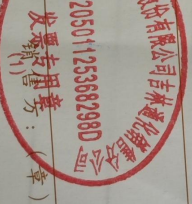 股份有限公司吉林通化销售分公司
220501125368298D
发票专用章
(1)
销售方：（章）